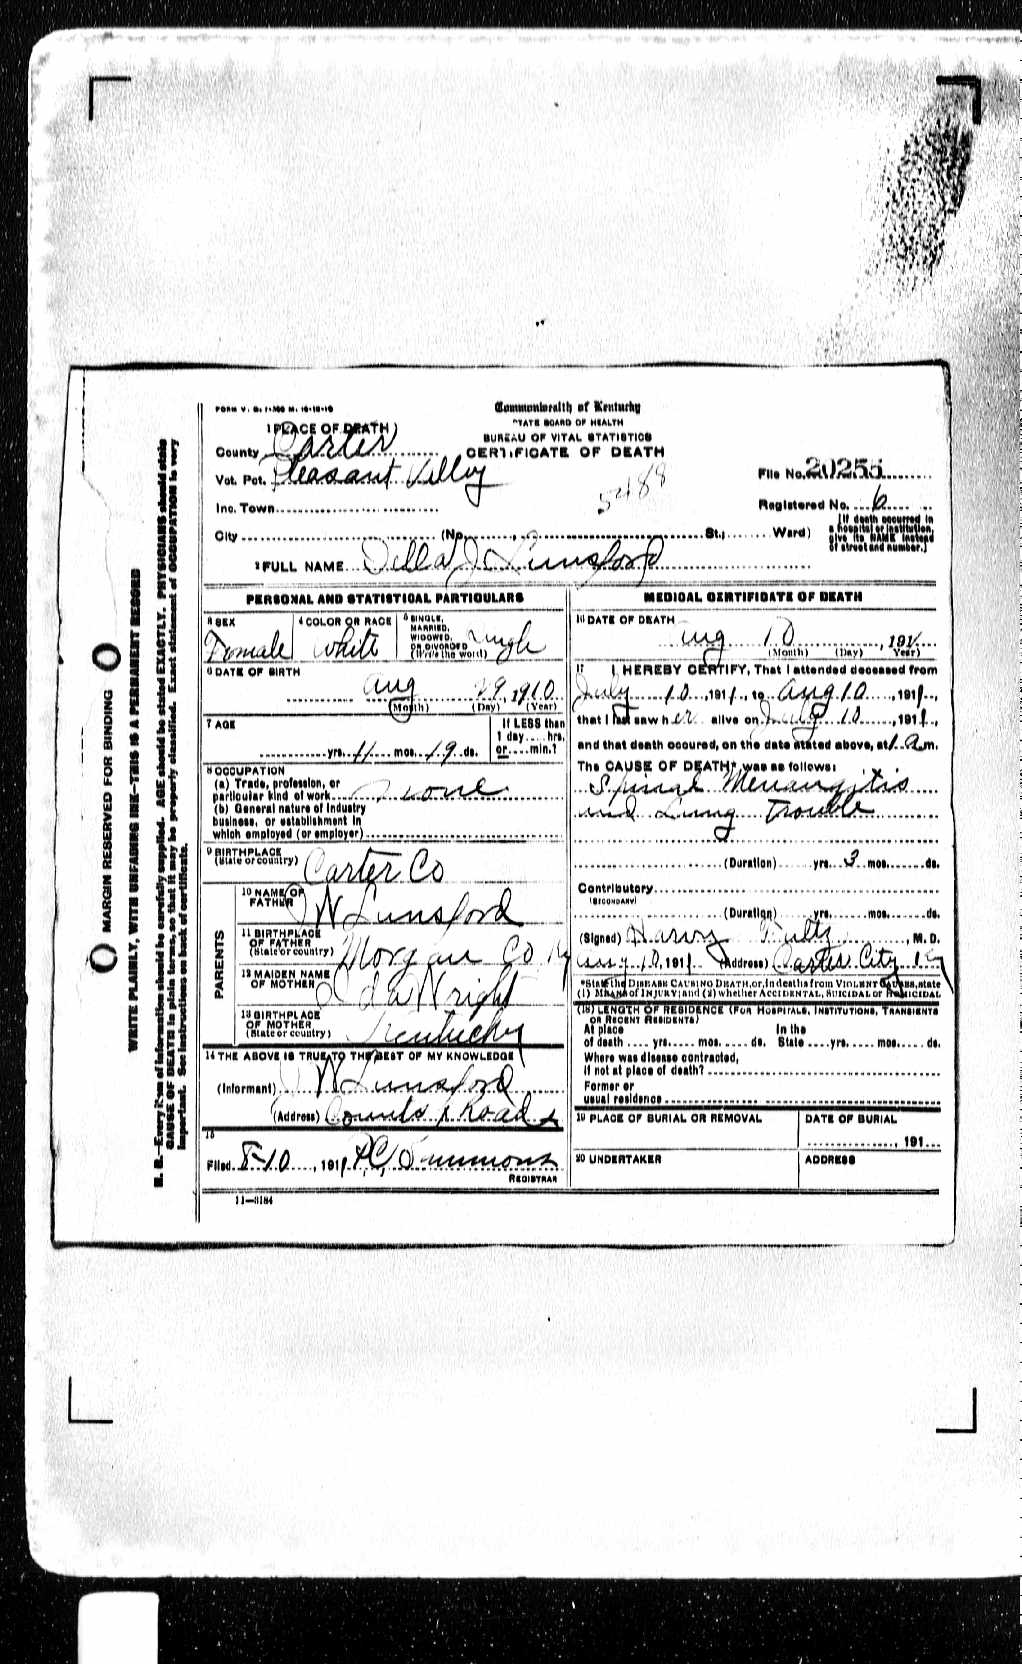 FORM V. S. 1-300 M. 10-18-10
Commonwealth of Kentucky
STATE BOARD OF HEALTH
BUREAU OF VITAL STATISTICS
CERTIFICATE OF DEATH
1 PLACE OF DEATH
County Carter
Vot. Pct. Pleasant Valley
Inc. Town
City (No. St.; Ward)
5488
File No. 20255
Registered No. 6
[If death occurred in
a hospital or institution,
give its NAME instead
of street and number.]
2 FULL NAME Della J. Lunsford
PERSONAL AND STATISTICAL PARTICULARS
3 SEX
Female
4 COLOR OR RACE
White
5 SINGLE,
MARRIED,
WIDOWED,
OR DIVORCED
(Write the word)
6 DATE OF BIRTH
Aug 29, 1910
(Month) (Day) (Year)
7 AGE
yrs. 11 mos. 19 ds.
If LESS than
1 day hrs.
or min.?
8 OCCUPATION
(a) Trade, profession, or
particular kind of work none
(b) General nature of industry
business, or establishment in
which employed (or employer)
9 BIRTHPLACE
(State or country) Carter Co
PARENTS
10 NAME OF
FATHER J W Lunsford
11 BIRTHPLACE
OF FATHER
(State or country) Morgan Co Ky
12 MAIDEN NAME
OF MOTHER Ida Wright
13 BIRTHPLACE
OF MOTHER
(State or country) Kentucky
14 THE ABOVE IS TRUE TO THE BEST OF MY KNOWLEDGE
(Informant) J W Lunsford
(Address) Counts X Roads
15
Filed 8-10, 1911 Simmons
REGISTRAR
11—3184
MEDICAL CERTIFICATE OF DEATH
16 DATE OF DEATH
Aug 10, 1911
(Month) (Day) (Year)
17 I HEREBY CERTIFY, That I attended deceased from
July 10, 1911, to Aug 10, 1911,
that I last saw her alive on July 10, 1911,
and that death occured, on the date stated above, at 1 a.m.
The CAUSE OF DEATH* was as follows:
Spinal Menangitis
and Lung Trouble
(Duration) yrs. 3 mos. ds.
Contributory
(SECONDARY)
(Duration) yrs. mos. ds.
(Signed) Harvy Fultz, M. D.
Aug 10, 1911 (Address) Carter City Ky
*State the DISEASE CAUSING DEATH, or, in deaths from VIOLENT CAUSES, state
(1) MEANS of INJURY; and (2) whether ACCIDENTAL, SUICIDAL or HOMICIDAL
(18) LENGTH OF RESIDENCE (FOR HOSPITALS, INSTITUTIONS, TRANSIENTS
OR RECENT RESIDENTS)
At place In the
of death yrs. mos. ds. State yrs. mos. ds.
Where was disease contracted,
if not at place of death?
Former or
usual residence
19 PLACE OF BURIAL OR REMOVAL
DATE OF BURIAL
, 191
20 UNDERTAKER
ADDRESS
MARGIN RESERVED FOR BINDING
WRITE PLAINLY, WITH UNFADING INK—THIS IS A PERMANENT RECORD
N. B.—Every item of information should be carefully supplied. AGE should be stated EXACTLY. PHYSICIANS should state
CAUSE OF DEATH in plain terms, so that it may be properly classified. Exact statement of OCCUPATION is very
important. See instructions on back of certificate.